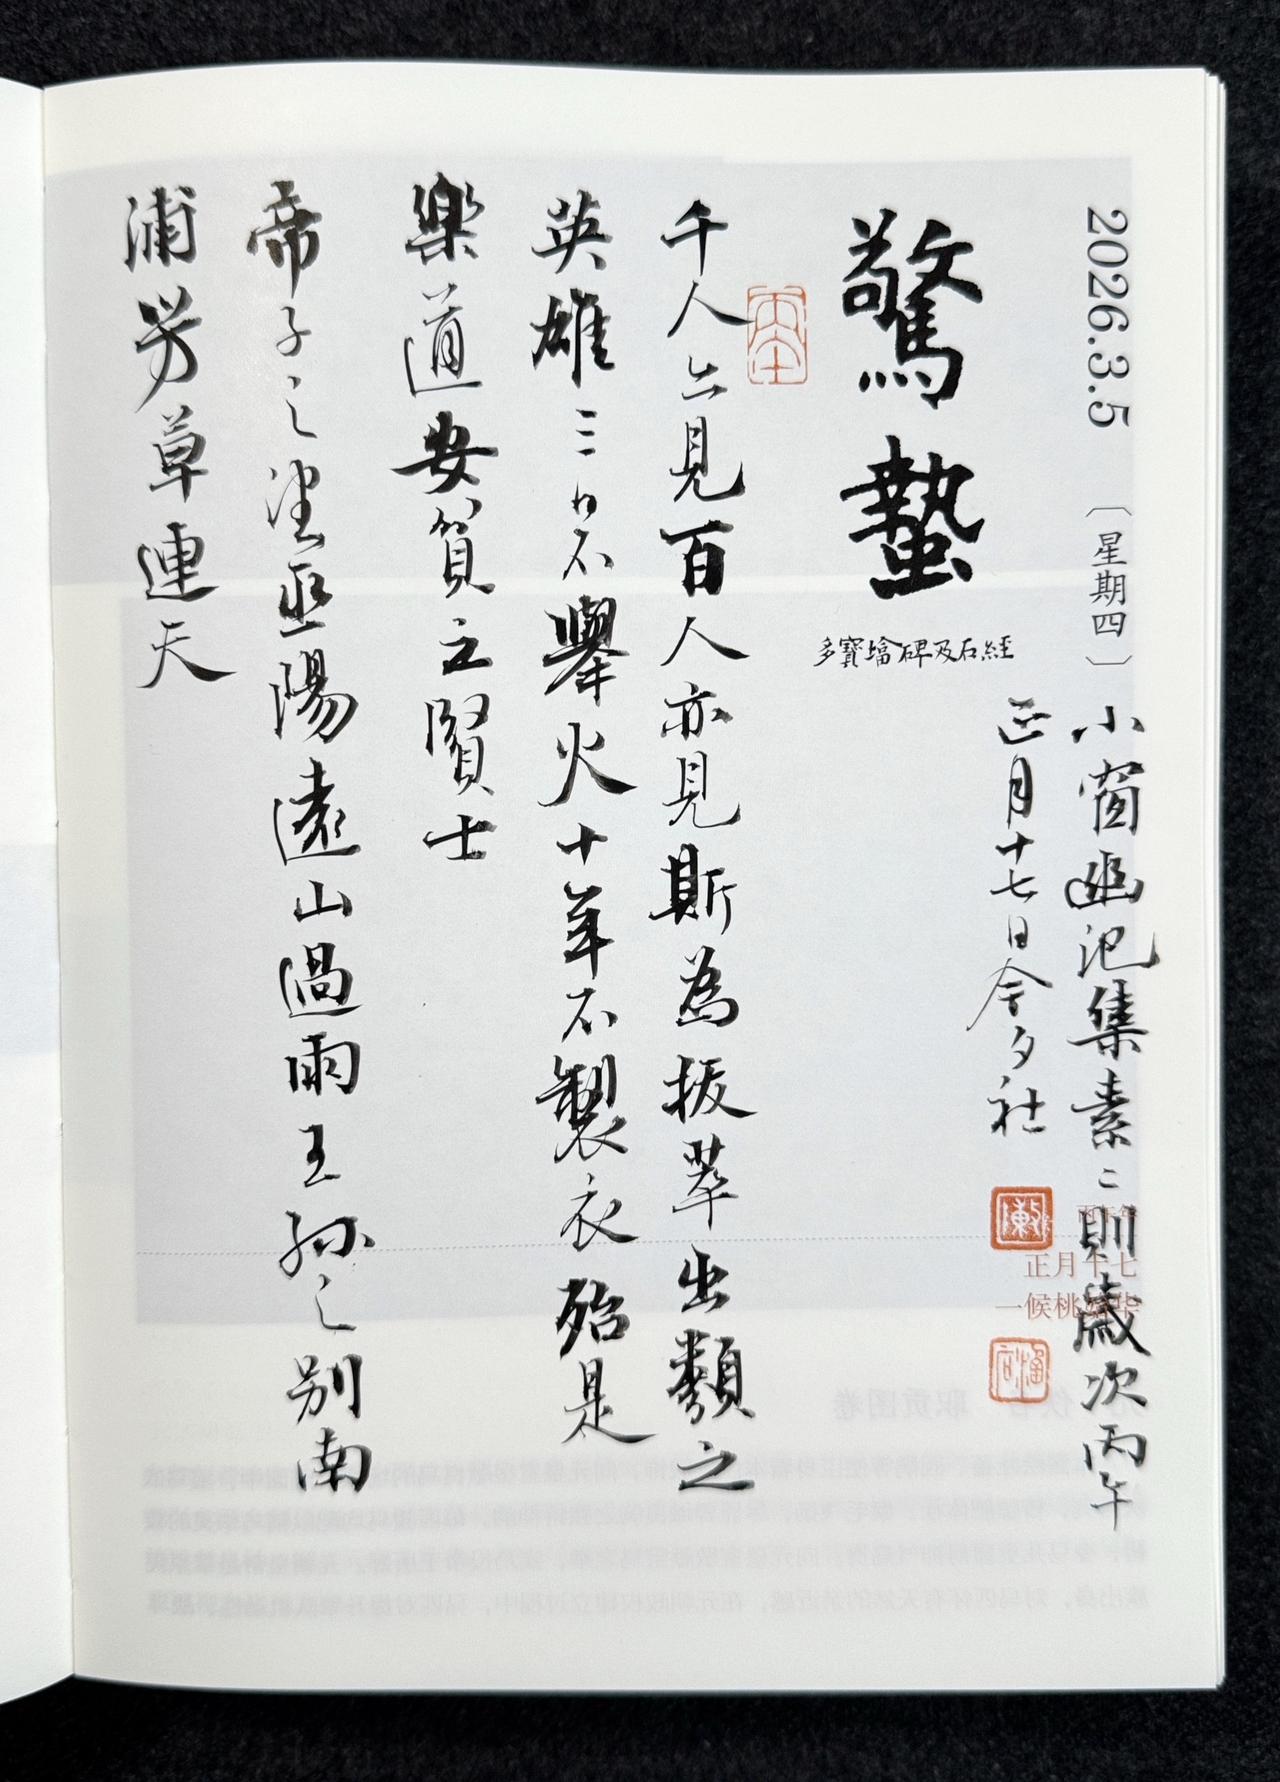 2026.3.5 〔星期四〕
小窗幽記集素二則歲次丙午
正月十七日今夕社
丙午年
正月十七
一候桃始华
驚蟄
多寶塔碑及石經
千人亦見百人亦見斯為拔萃出類之
英雄三日不舉火十年不製衣殆是
樂道安貧之賢士
帝子之望巫陽遠山過雨王孫之別南
浦芳草連天